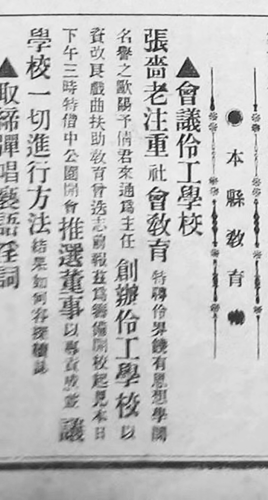 本縣教育
▲會議伶工學校
張嗇老注重社會敎育特尋伶界饒有思想學問
名譽之歐陽予倩君來通爲主任創辦伶工學校以
資改良戲曲扶助敎育曾迭志前報茲爲籌備開校起見本日
下午三時特借中公園開會推選董事以專責成並議
學校一切進行方法結果如何容探續誌
▲取締彈唱褻語淫詞